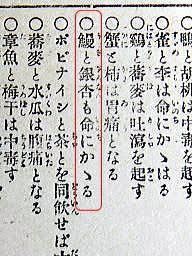 は中毒す
○雀と李は命にかゝる
○鶏と蕎麦は吐瀉を起す
○蟹と柿は胃痛となる
○鰻と銀杏も命にかゝる
○ポピナイシと茶とを同飲せば
○蕎麦と水瓜は腹痛となる
○章魚と梅干は中毒す